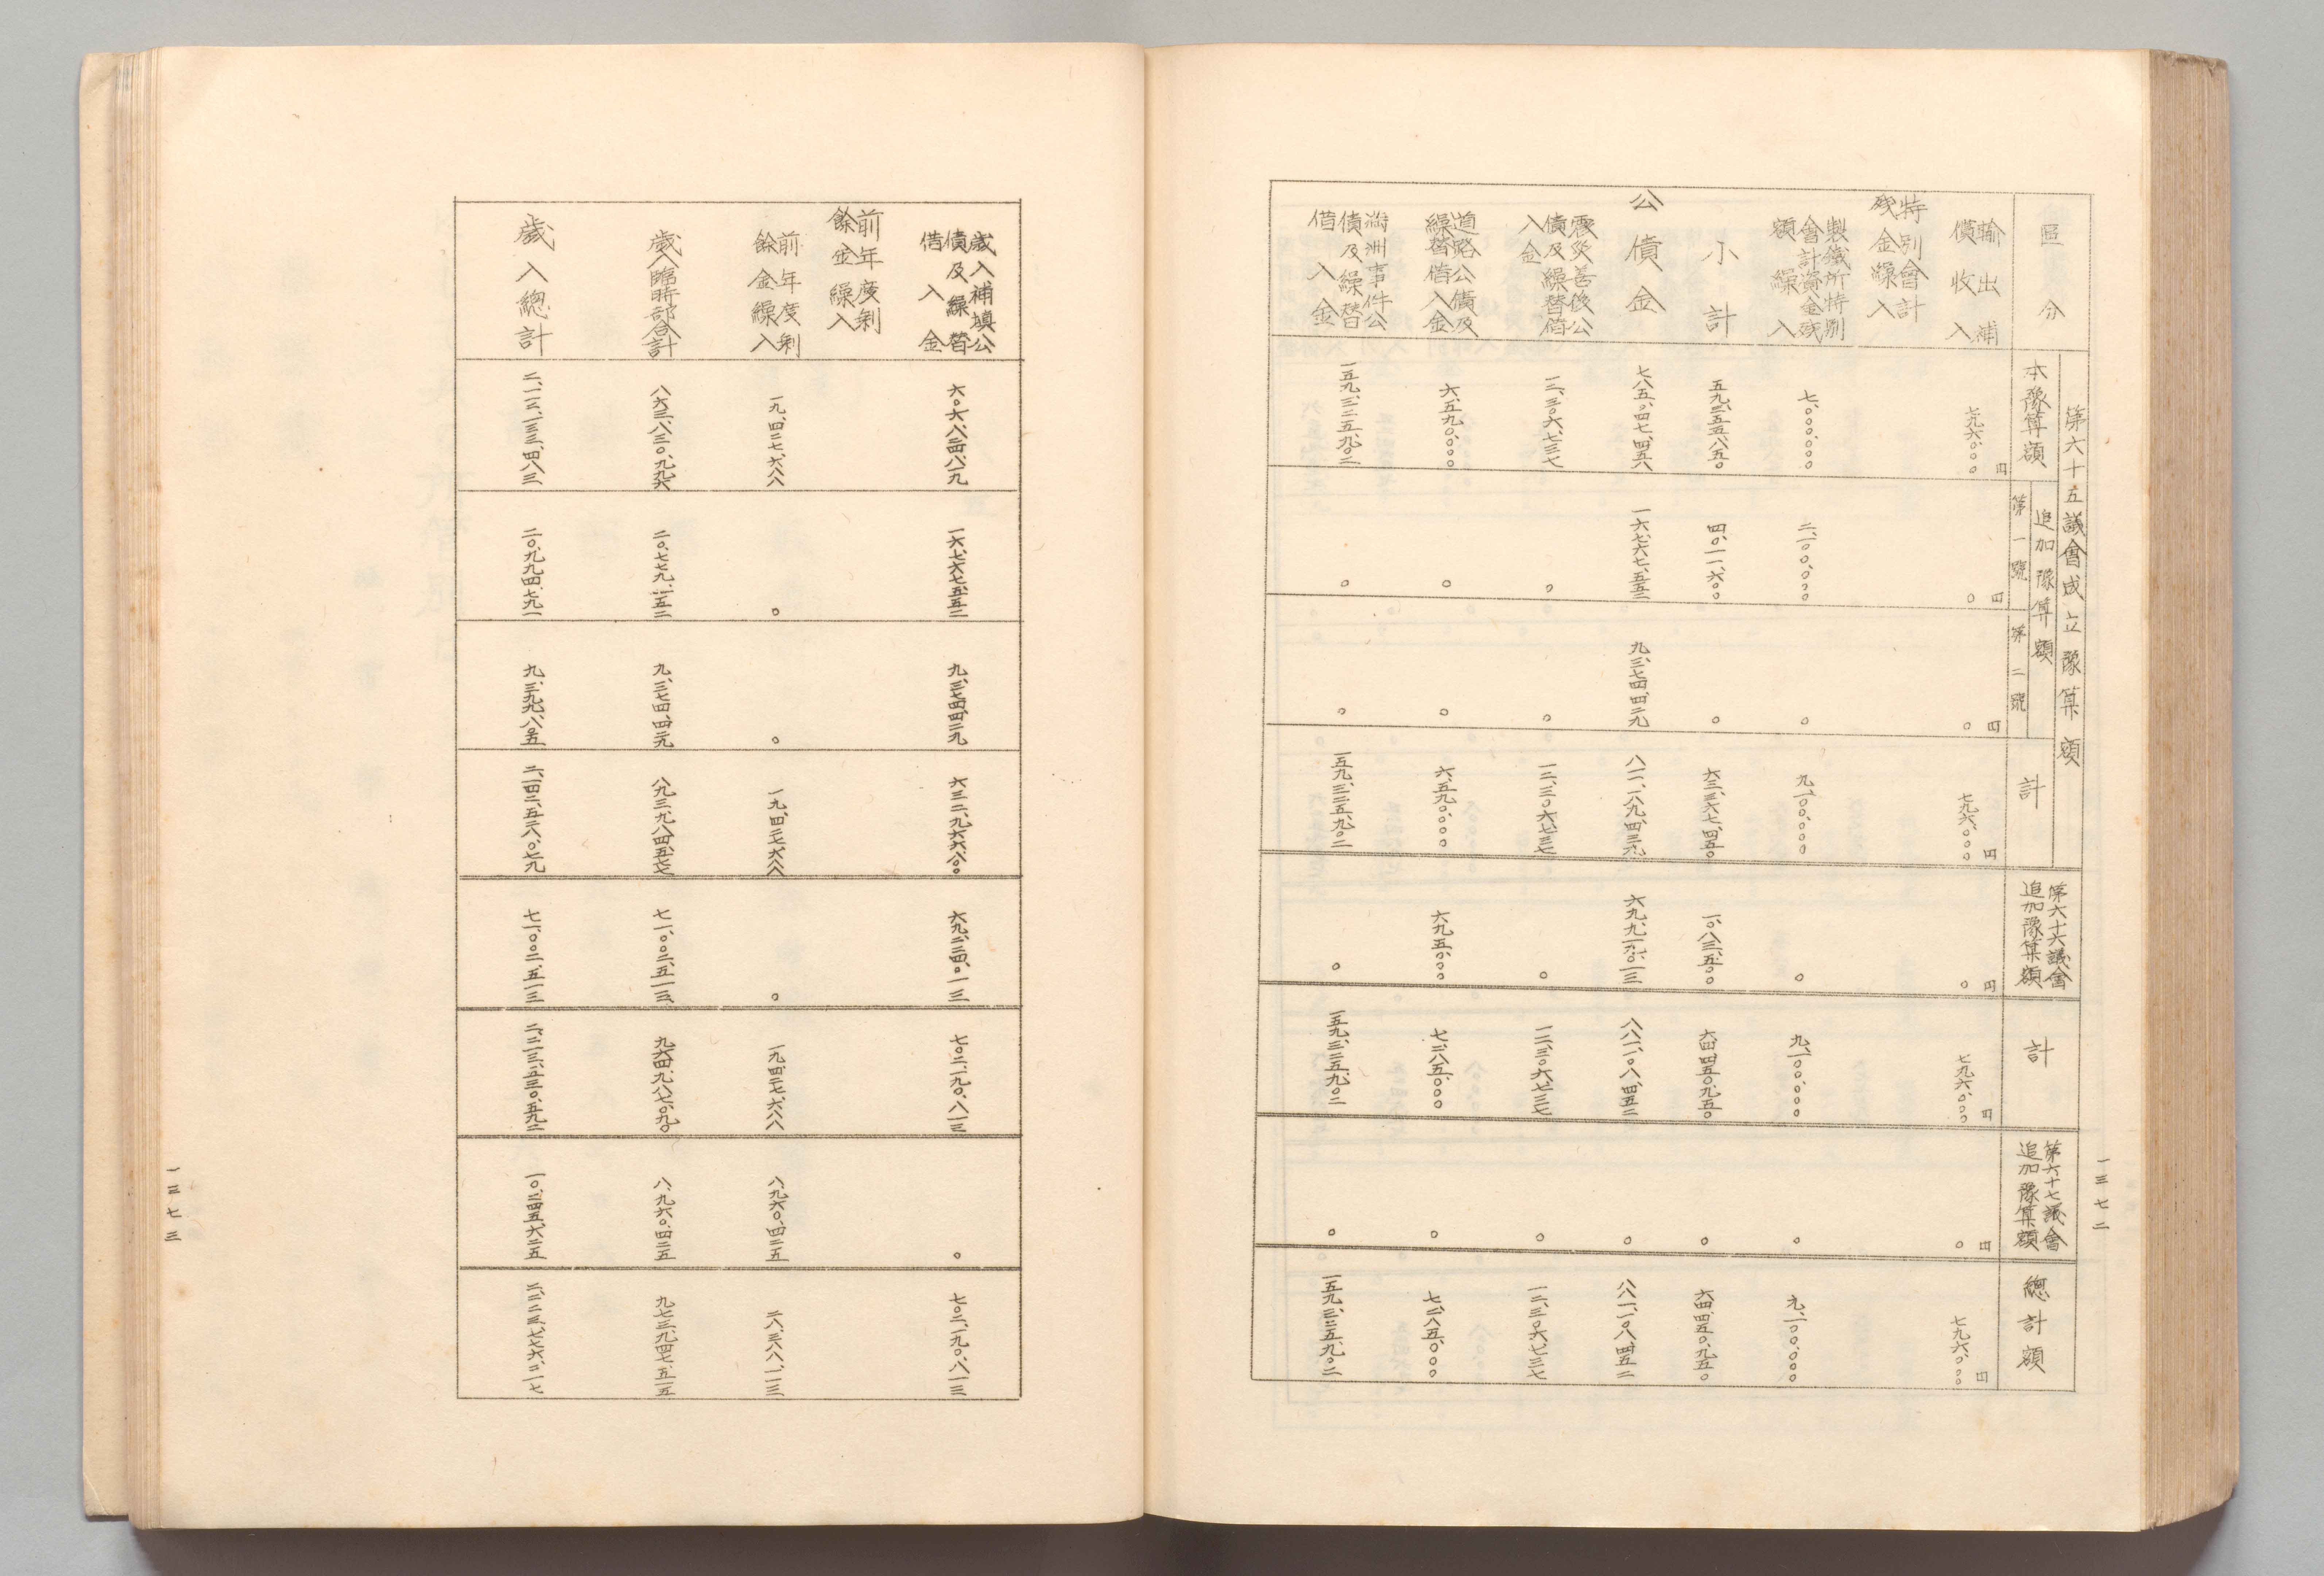 一三七二
區分
第六十五議會成立豫算額
本豫算額
追加豫算額
第一號
第二號
計
第六十六議會
追加豫算額
計
第六十七議會
追加豫算額
總計額
輸出補
償收入
七九六、〇〇〇円
〇円
〇円
七九六、〇〇〇円
〇円
七九六、〇〇〇円
〇円
七九六、〇〇〇円
特別會計
殘金繰入
製鐵所特別
會計資金殘
額繰入
七、〇〇〇、〇〇〇
二、一〇〇、〇〇〇
〇
九、一〇〇、〇〇〇
〇
九、一〇〇、〇〇〇
〇
九、一〇〇、〇〇〇
小計
五九、三五五、八五〇
四、〇一一、六〇〇
〇
六三、三六七、四五〇
一、〇八三、五〇〇
六四、四五〇、九五〇
〇
六四、四五〇、九五〇
公債金
七八五、〇四七、四五八
一六、七六七、五五二
九、三七四、四二九
八一一、一八九、四三九
六九、九一九、〇一三
八八一、一〇八、四五二
〇
八八一、一〇八、四五二
震災善後公
債及繰替借
入金
一二、三〇六、七三七
〇
〇
一二、三〇六、七三七
〇
一二、三〇六、七三七
〇
一二、三〇六、七三七
道路公債及
繰替借入金
六、五九〇、〇〇〇
〇
〇
六、五九〇、〇〇〇
六九五、〇〇〇
七、二八五、〇〇〇
〇
七、二八五、〇〇〇
滿洲事件公
債及繰替
借入金
一五九、三二五、九〇二
〇
〇
一五九、三二五、九〇二
〇
一五九、三二五、九〇二
〇
一五九、三二五、九〇二
歳入補填公
債及繰替
借入金
六〇六、八二四、八一九
一六、七六七、五五二
九、三七四、四二九
六三二、九六六、八〇〇
六九、二二四、〇一三
七〇二、一九〇、八一三
〇
七〇二、一九〇、八一三
前年度剰
餘金繰入
前年度剰
餘金繰入
一九、四二七、六八八
〇
〇
一九、四二七、六八八
〇
一九、四二七、六八八
八、九六〇、四二五
二八、三八八、一一三
歳入臨時部合計
八六三、八三〇、九九六
二〇、七七九、一五二
九、三七四、四二九
八九三、九八四、五七七
七一、〇〇二、五一三
九六四、九八七、〇九〇
八、九六〇、四二五
九七三、九四七、五一五
歳入總計
二、一一二、一三三、四八三
二〇、九九四、七九一
九、三九九、八〇五
二、一四二、五二八、〇七九
七一、〇〇二、五一三
二、二一三、五三〇、五九二
一〇、二四五、六二五
二、二二三、七七六、二一七
一三七三